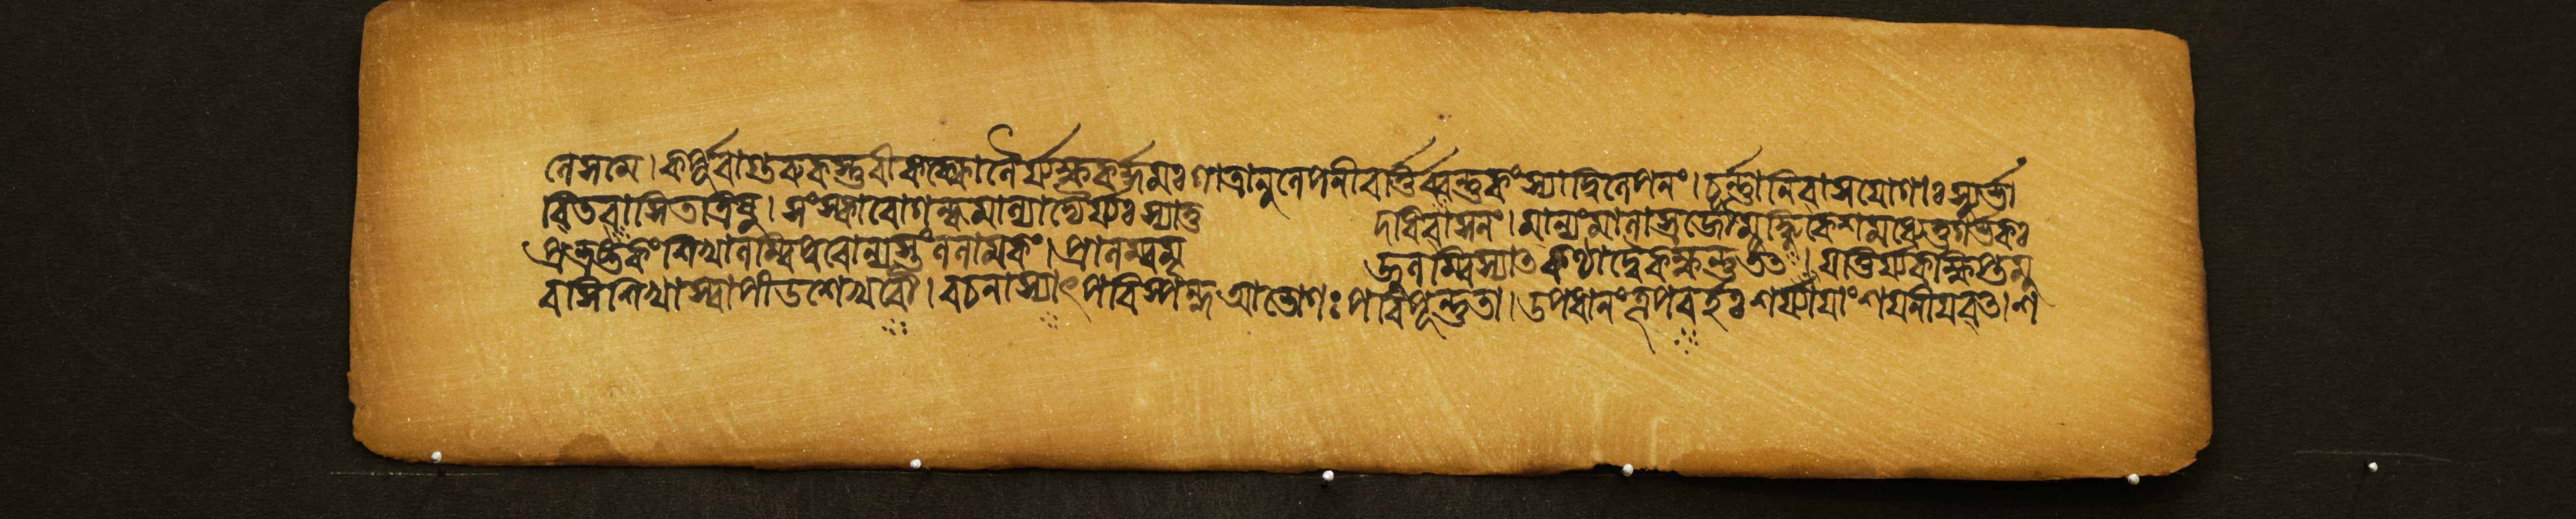 লেসমে। কর্পূরাগুরুকস্তুরীকক্কোলৈর্য্যক্ষকর্দ্দমঃ গাত্রানুলেপনীবর্ত্তির্ব্বর্ণ্ণকংস্যাদ্বিলেপনং। চূর্ণ্ণানিবাসযোগাঃ স্যুর্ভা
বিতবাসিতাত্রিষু। সংস্কারোগন্ধমাল্যাদ্যৈর্য্যঃ স্যাত্ত দধিবাসনং। মাল্যংমালাস্রজৌমূর্দ্ধ্নিকেশমধ্যেতুগর্ভকঃ
প্রভ্রষ্টকংশিখালম্বিপুরোন্যস্তংললামকং। প্রালম্বমৃ জুলম্বিস্যাত্কণ্ঠাদ্বৈকক্ষকন্তুতৎ। যত্তির্য্যক্ক্ষিপ্তমু
রসিশিখাস্বাপীডশেখরৌ। রচনাস্যাৎপরিস্পন্দআভোগঃ পরিপূর্ণ্ণতা। উপধানংতূপবর্হঃ শয্যাযাংশযনীযবত্। শ